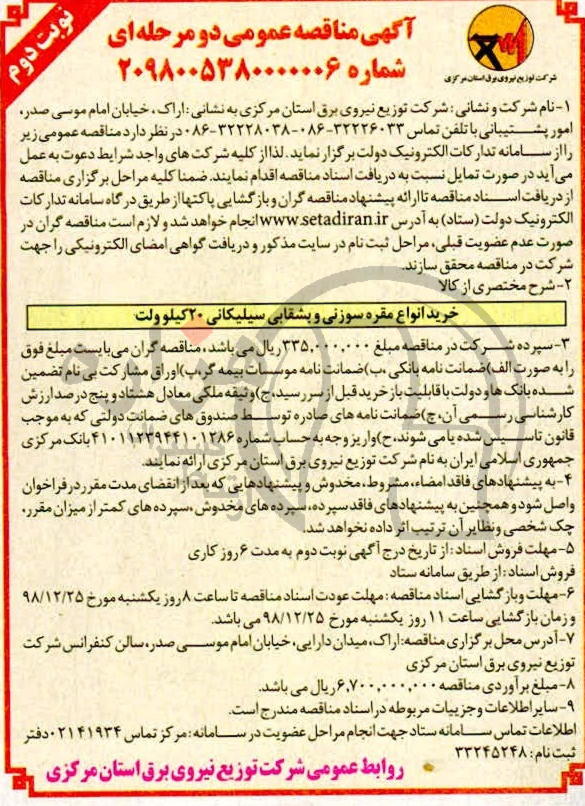 نوبت دوم
آگهی مناقصه عمومی دو مرحله ای
شماره ۲۰۹۸۰۰۵۳۸۰۰۰۰۰۰۶
شرکت توزیع نیروی برق استان مرکزی
۱-نام شرکت و نشانی: شرکت توزیع نیروی برق استان مرکزی به نشانی: اراک، خیابان امام موسی صدر،
امور پشتیبانی با تلفن تماس ۳۲۲۲۶۰۳۳-۰۸۶-۳۲۲۲۸۰۳۸-۰۸۶ در نظر دارد مناقصه عمومی زیر
را از سامانه تدارکات الکترونیک دولت برگزار نماید. لذا از کلیه شرکت های واجد شرایط دعوت به عمل
می آید در صورت تمایل نسبت به دریافت اسناد مناقصه اقدام نمایند. ضمنا کلیه مراحل برگزاری مناقصه
از دریافت اسناد مناقصه تا ارائه پیشنهاد مناقصه گران و بازگشایی پاکتها از طریق درگاه سامانه تدارکات
الکترونیک دولت (ستاد) به آدرس www.setadiran.ir انجام خواهد شد و لازم است مناقصه گران در
صورت عدم عضویت قبلی، مراحل ثبت نام در سایت مذکور و دریافت گواهی امضای الکترونیکی را جهت
شرکت در مناقصه محقق سازند.
۲-شرح مختصری از کالا
خرید انواع مقره سوزنی و بشقابی سیلیکانی ۲۰کیلو ولت
۳-سپرده شرکت در مناقصه مبلغ ۳۳۵,۰۰۰,۰۰۰ ریال می باشد، مناقصه گران می بایست مبلغ فوق
را به صورت الف)ضمانت نامه بانکی ،ب)ضمانت نامه موسسات بیمه گر،پ)اوراق مشارکت بی نام تضمین
شده بانک ها و دولت با قابلیت باز خرید قبل از سر رسید، ج)وثیقه ملکی معادل هشتاد و پنج در صد ارزش
کارشناسی رسمی آن، چ)ضمانت نامه های صادره توسط صندوق های ضمانت دولتی که به موجب
قانون تاسیس شده یا می شوند، ح)واریز وجه به حساب شماره ۴۱۰۱۱۲۳۹۴۴۱۰۱۲۸۶ بانک مرکزی
جمهوری اسلامی ایران به نام شرکت توزیع نیروی برق استان مرکزی ارائه نمایند.
۴-به پیشنهادهای فاقد امضاء، مشروط، مخدوش و پیشنهادهایی که بعد از انقضای مدت مقرر در فراخوان
واصل شود و همچنین به پیشنهادهای فاقد سپرده، سپرده های مخدوش، سپرده های کمتر از میزان مقرر،
چک شخصی و نظایر آن ترتیب اثر داده نخواهد شد.
۵-مهلت فروش اسناد: از تاریخ درج آگهی نوبت دوم به مدت ۶ روز کاری
فروش اسناد: از طریق سامانه ستاد
۶-مهلت و بازگشایی اسناد مناقصه: مهلت عودت اسناد مناقصه تا ساعت ۸ روز یکشنبه مورخ ۹۸/۱۲/۲۵
و زمان بازگشایی ساعت ۱۱ روز یکشنبه مورخ ۹۸/۱۲/۲۵ می باشد.
۷-آدرس محل برگزاری مناقصه: اراک، میدان دارایی، خیابان امام موسی صدر، سالن کنفرانس شرکت
توزیع نیروی برق استان مرکزی
۸-مبلغ برآوردی مناقصه ۶,۷۰۰,۰۰۰,۰۰۰ ریال می باشد.
۹-سایر اطلاعات و جزییات مربوطه در اسناد مناقصه مندرج است.
اطلاعات تماس سامانه ستاد جهت انجام مراحل عضویت در سامانه: مرکز تماس ۰۲۱۴۱۹۳۴ دفتر
ثبت نام: ۳۳۲۴۵۲۴۸
روابط عمومی شرکت توزیع نیروی برق استان مرکزی